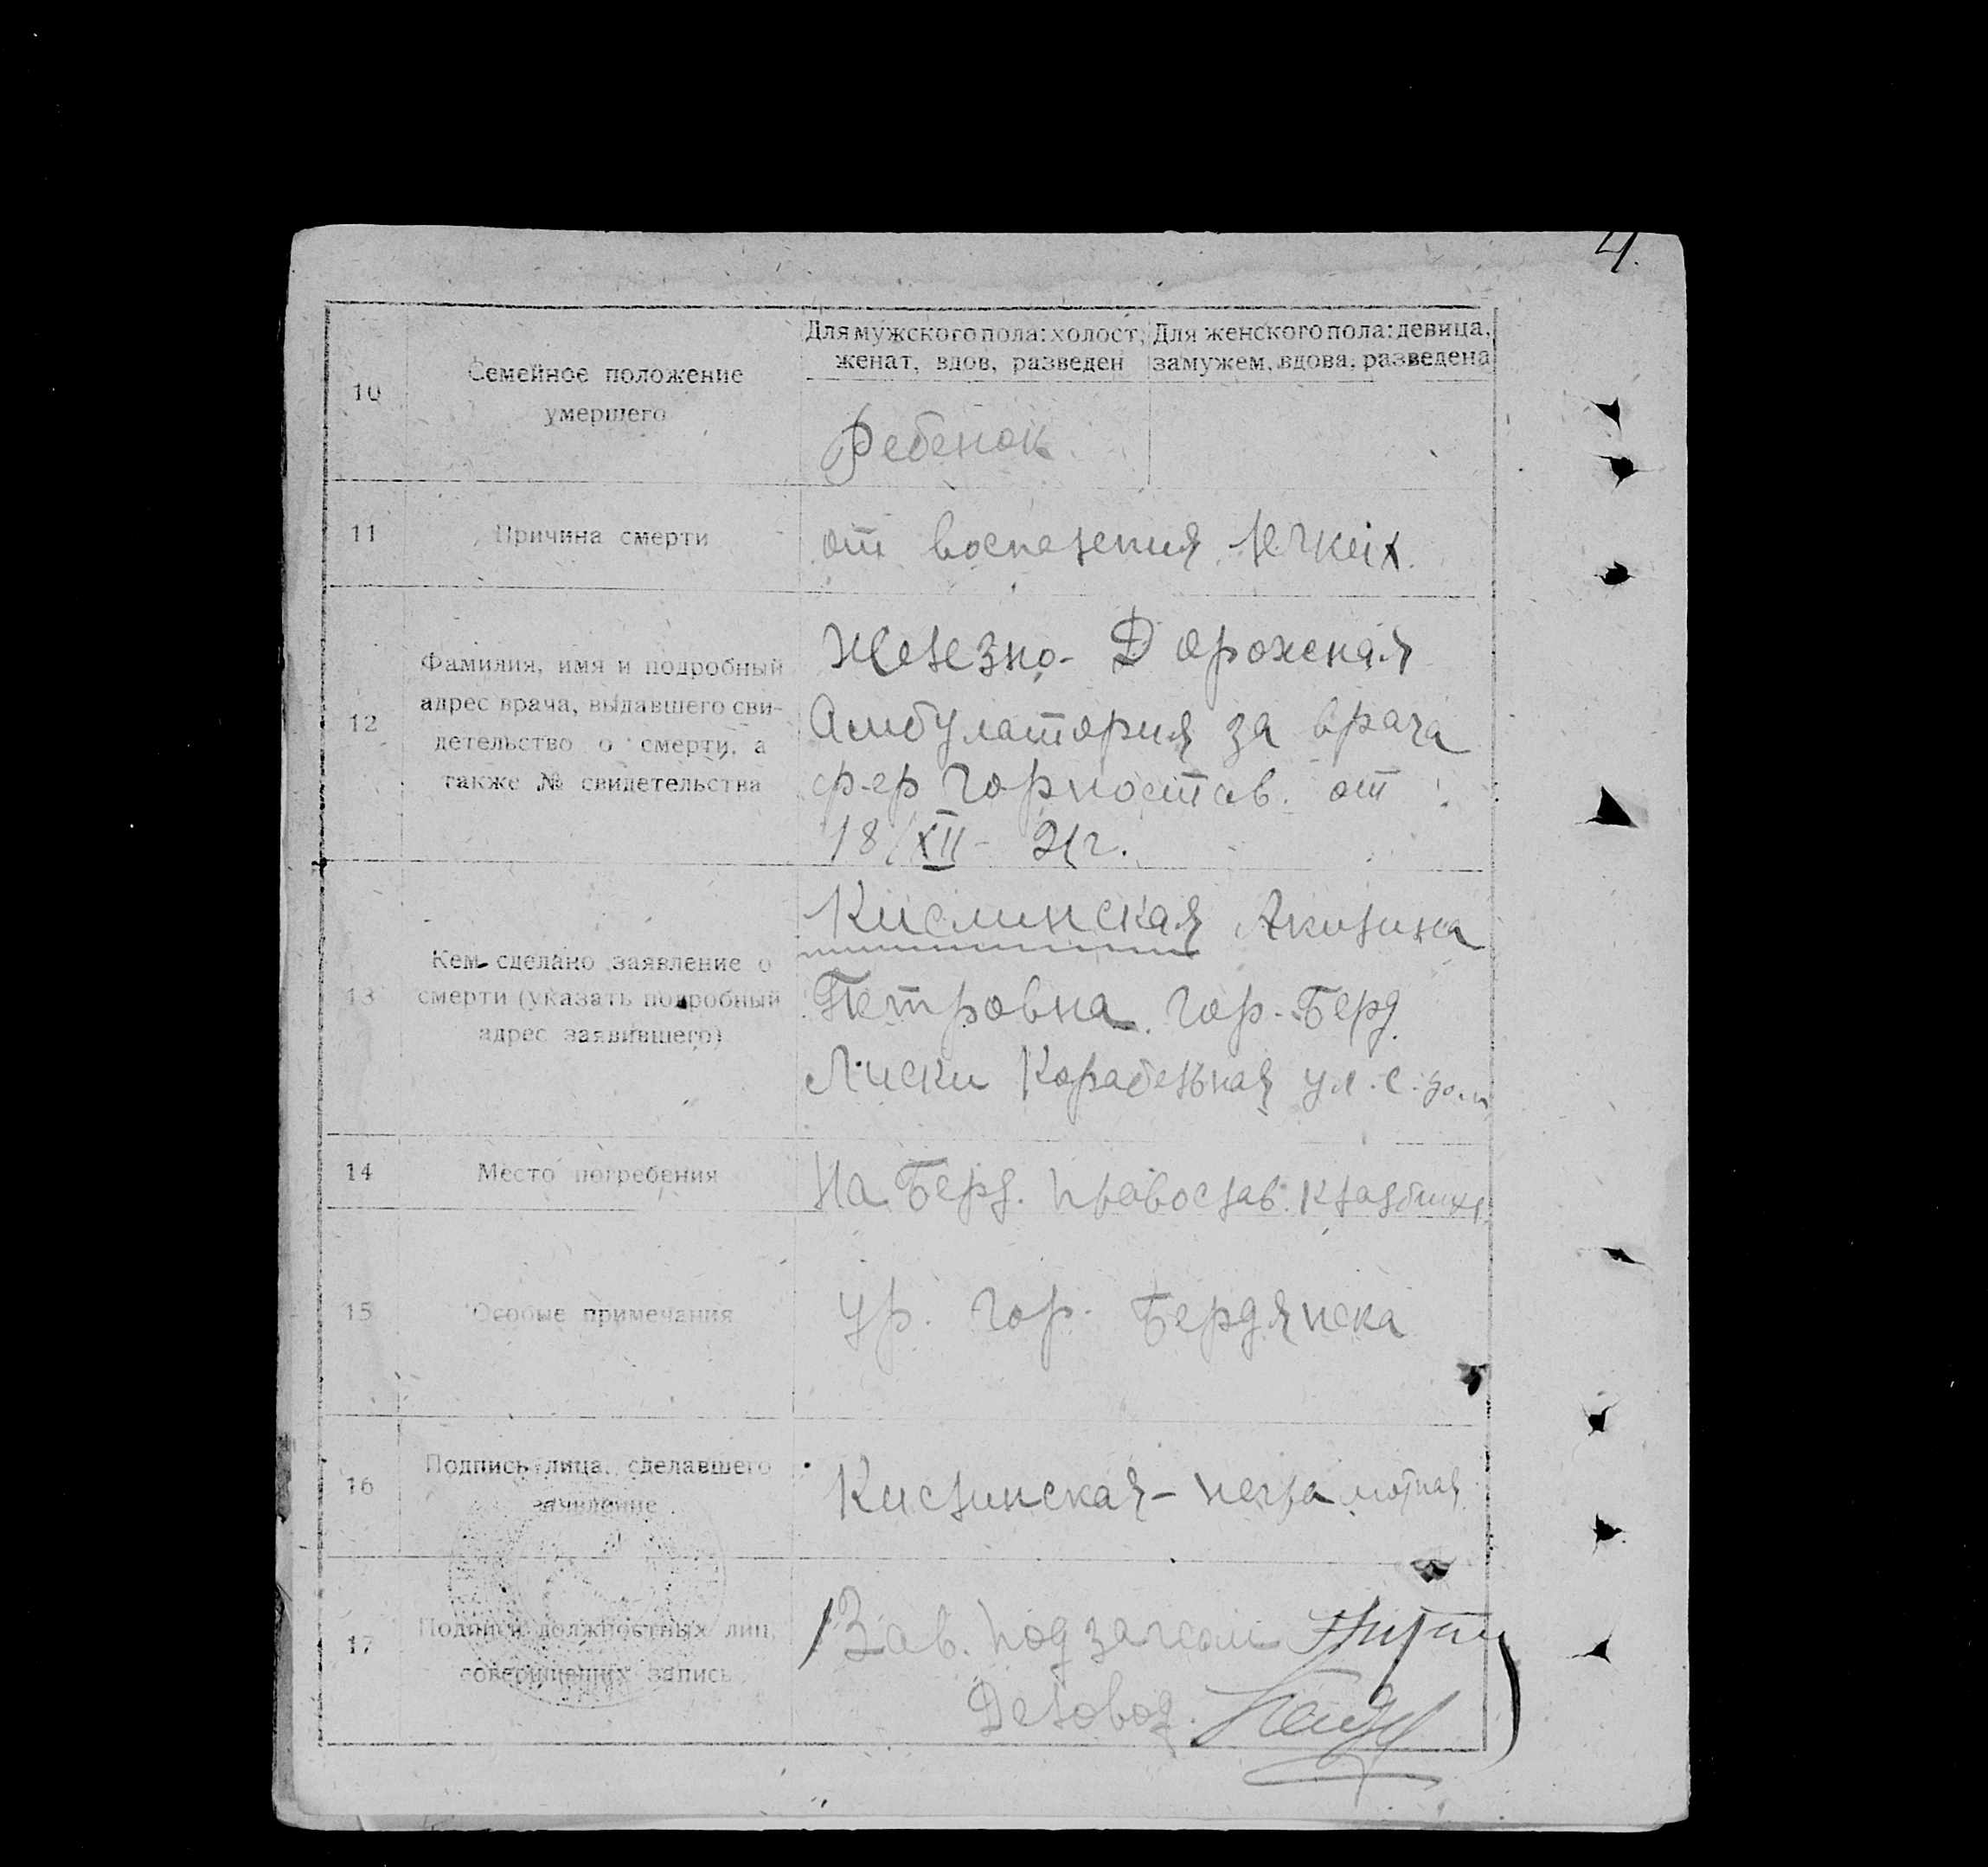 4.
10
Семейное положение
умершего
Для мужского пола: холост,
женат, вдов, разведен
Для женского пола: девица,
замужем, вдова, разведена
Ребенок
11
Причина смерти
от воспаления легких.
12
Фамилия, имя и подробный
адрес врача, выдавшего сви-
детельство о смерти, а
также № свидетельства
Железно-Дорожная
Амбулатория за врача
ф-ер Горностаев. от
18/XII - 21г.
13
Кем сделано заявление о
смерти (указать подробный
адрес заявившего)
Кислинская Акилина
Петровна. гор. Берд.
Лиски Корабельная ул. с. дом
14
Место погребения
На Берд. православ. кладбище
15
Особые примечания
ур. гор. Бердянска
16
Подпись лица, сделавшего
заявление
Кислинская - неграмотная
17
Подписи должностных лиц,
совершивших запись
Зав. подзагсом
Деловод.